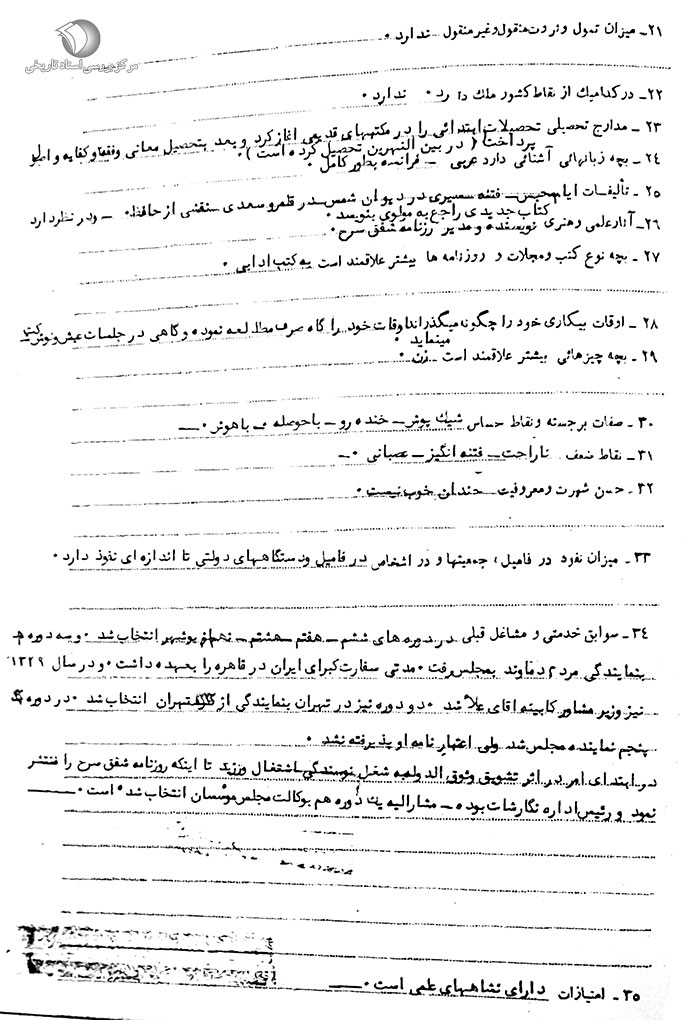 مرکز بررسی اسناد تاریخی
۲۱ـ میزان تمول و ثروت منقول و غیر منقول ندارد ۰
۲۲ـ در کدامیک از نقاط کشور ملک دارد ۰ ندارد ۰
۲۳ ـ مدارج تحصیلی تحصیلات ابتدائی را در مکتبهای قدیمی آغاز کرد و بعد بتحصیل معانی و فقه و کفایه و اصول
پرداخت ( در بین النهرین تحصیل کرده است ) ۰
۲۴ ـ بچه زبانهائی آشنائی دارد عربی ـ فرانسه بطور کامل ۰
۲۵ ـ تألیفات ایام محبس ـ فتنه ـ سیری در دیوان شمس ـ در قلمرو سعدی ـ نقشی از حافظ ۰ ـ و در نظر دارد
کتاب جدیدی راجع به مولوی بنویسد ۰
۲۶ـ آثار علمی و هنری نویسنده و مدیر روزنامه شفق سرخ ۰
۲۷ ـ بچه نوع کتب و مجلات و روزنامه ها بیشتر علاقمند است به کتب ادبی ۰
۲۸ ـ اوقات بیکاری خود را چگونه میگذراند اوقات خود را گاه صرف مطالعه نموده و گاهی در جلسات عیش و نوش
مینماید ۰
۲۹ ـ بچه چیزهائی بیشتر علاقمند است زن ۰
۳۰ ـ صفات برجسته و نقاط حساس شیک پوش ـ خنده رو ـ با حوصله ـ با هوش ۰ـ
۳۱ ـ نقاط ضعف ناراحت ـ فتنه انگیز ـ عصبانی ۰ـ
۳۲ ـ حسن شهرت و معروفیت چندان خوب نیست ۰
۳۳ ـ میزان نفوذ در فامیل ، جمعیتها و در اشخاص در فامیل و دستگاههای دولتی تا اندازه ای نفوذ دارد ۰
۳۴ ـ سوابق خدمتی و مشاغل قبلی در دوره های ششم ـ هفتم ـ هشتم ـ نهم از بوشهر انتخاب شد ۰ و سه دوره هم
بنمایندگی مردم دماوند بمجلس رفت ۰ مدتی سفارت کبرای ایران در قاهره را بعهده داشت ۰ و در سال ۱۳۲۹
نیز وزیر مشاور کابینه آقای علاء شد ۰ دو دوره نیز در تهران بنمایندگی از تهران انتخاب شد ۰ در دوره
پنجم نماینده مجلس شد ولی اعتبار نامه او پذیرفته نشد ۰
در ابتدای امر در اثر تشویق وثوق الدوله به شغل نویسندگی اشتغال ورزید تا اینکه روزنامه شفق سرخ را منتشر
نمود و رئیس اداره نگارشات بوده ـ مشارالیه یک دوره هم بوکالت مجلس مؤسسان انتخاب شده است ۰ـ
۳۵ ـ امتیازات دارای نشانهای علمی است ۰ـ